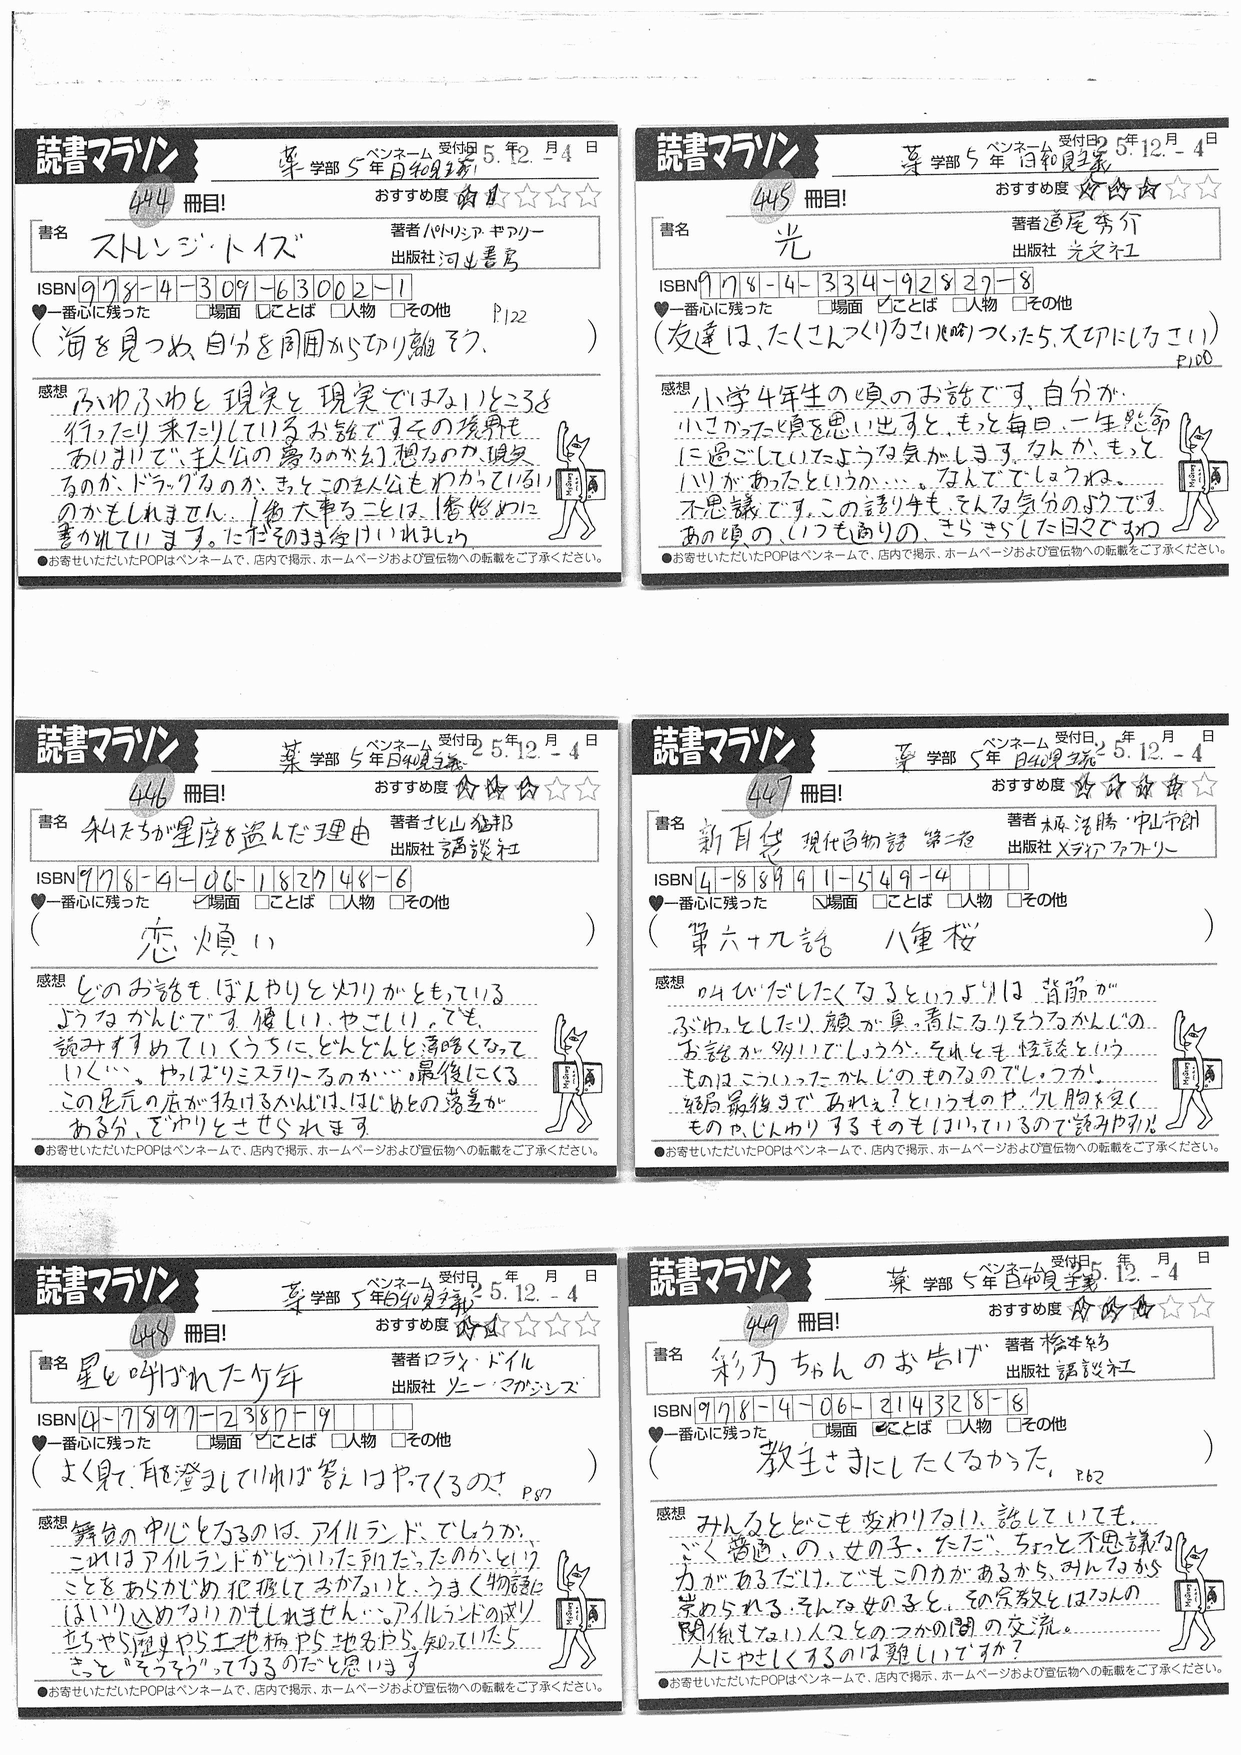 読書マラソン
薬 学部 5年 ペンネーム 日和見主義 受付日 25.12.-4 年 月 日
444 冊目!
おすすめ度
書名 ストレンジ・トイズ
著者 パトリシア・ギアリー
出版社 河出書房
ISBN 978-4-309-63002-1
♥一番心に残った □場面 ☑ことば □人物 □その他
P.122
(海を見つめ、自分を周囲から切り離そう、)
感想 ふわふわと現実と現実ではないところを
行ったり来たりしているお話です。その境界も
あいまいで、主人公の夢なのか幻想なのか、現実
なのか、ドラッグなのか、きっとこの主人公もわかっていない
のかもしれません。1番大事なことは、1番始めに
書かれています。ただそのまま受けいれましょう
●お寄せいただいたPOPはペンネームで、店内で掲示、ホームページおよび宣伝物への転載をご了承ください。
読書マラソン
薬 学部 5年 ペンネーム 日和見主義 受付日 25.12.-4 年 月 日
445 冊目!
おすすめ度
書名 光
著者 道尾秀介
出版社 光文社
ISBN 978-4-334-92827-8
♥一番心に残った □場面 ☑ことば □人物 □その他
(友達は、たくさんつくりなさい(略)つくったら、大切にしなさい)
P.100
感想 小学4年生の頃のお話です。自分が
小さかった頃を思い出すと、もっと毎日、一生懸命
に過ごしていたような気がします。なんか、もっと
ハリがあったというか…。なんででしょうね。
不思議です。この語り手も、そんな気分のようです。
あの頃の、いつも通りの、きらきらした日々ですね
●お寄せいただいたPOPはペンネームで、店内で掲示、ホームページおよび宣伝物への転載をご了承ください。
読書マラソン
薬 学部 5年 ペンネーム 日和見主義 受付日 25.12.-4 年 月 日
446 冊目!
おすすめ度
書名 私たちが星座を盗んだ理由
著者 北山猛邦
出版社 講談社
ISBN 978-4-06-182748-6
♥一番心に残った ☑場面 □ことば □人物 □その他
(恋煩い)
感想 どのお話も、ぼんやりと灯りがともっている
ようなかんじです。優しい、やさしい。でも、
読みすすめていくうちに、どんどんと薄暗くなって
いく…。やっぱりミステリーなのか…。最後にくる
この足元の底が抜けるかんじは、はじめとの落差が
ある分、ぞわりとさせられます。
●お寄せいただいたPOPはペンネームで、店内で掲示、ホームページおよび宣伝物への転載をご了承ください。
読書マラソン
薬 学部 5年 ペンネーム 日和見主義 受付日 25.12.-4 年 月 日
447 冊目!
おすすめ度
書名 新耳袋 現代百物語 第二夜
著者 木原浩勝・中山市朗
出版社 メディアファクトリー
ISBN 4-88991-549-4
♥一番心に残った ☑場面 □ことば □人物 □その他
(第六十九話 八重桜)
感想 叫びだしたくなるというよりは 背筋が
ぶわっとしたり、顔が真っ青になりそうなかんじの
お話が多いでしょうか。それとも怪談という
ものはこういったかんじのものなのでしょうか。
結局最後まで あれぇ?というものや、少し胸を突く
ものや、じんわりするものもはいっているので読みやすい。
●お寄せいただいたPOPはペンネームで、店内で掲示、ホームページおよび宣伝物への転載をご了承ください。
読書マラソン
薬 学部 5年 ペンネーム 日和見主義 受付日 25.12.-4 年 月 日
448 冊目!
おすすめ度
書名 星と呼ばれた少年
著者 ロディ・ドイル
出版社 ソニー・マガジンズ
ISBN 4-7897-2387-9
♥一番心に残った □場面 ☑ことば □人物 □その他
(よく見て、耳を澄ましていれば答えはやってくるのさ)
P.87
感想 舞台の中心となるのは、アイルランド、でしょうか。
これはアイルランドがどういった所だったのか、という
ことをあらかじめ把握しておかないと、うまく物語に
はいり込めないかもしれません…。アイルランドの成り
立ちやら歴史やら土地柄やら地名やら。知っていたら
きっと"そうそう"ってなるのだと思います
●お寄せいただいたPOPはペンネームで、店内で掲示、ホームページおよび宣伝物への転載をご了承ください。
読書マラソン
薬 学部 5年 ペンネーム 日和見主義 受付日 25.12.-4 年 月 日
449 冊目!
おすすめ度
書名 彩乃ちゃんのお告げ
著者 橋本紡
出版社 講談社
ISBN 978-4-06-214328-8
♥一番心に残った □場面 ☑ことば □人物 □その他
(教主さまにしたくなかった。)
P.62
感想 みんなとどこも変わりない、話していても、
ごく普通、の、女の子。ただ、ちょっと不思議な
力があるだけ。でもこの力があるから、みんなから
崇められる。そんな女の子と、その宗教とはなんの
関係もない人々とのつかの間の交流。
人にやさしくするのは難しいですか?
●お寄せいただいたPOPはペンネームで、店内で掲示、ホームページおよび宣伝物への転載をご了承ください。